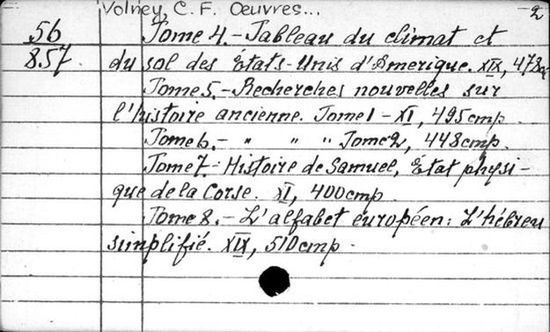 Volney, C. F. Oeuvres... -2
56 Tome 4.- Tableau du climat et
857 du sol des États-Unis d'Amerique. XIX, 473стр.
Tome 5.- Recherches nouvelles sur
l'histoire ancienne. Tome 1 - XI, 495стр.
Tome 6.- " " " Tome 2, 448стр.
Tome 7.- Histoire de Samuel, État physi-
que de la Corse. XI, 400стр.
Tome 8.- L'alfabet européen: L'hébreu
simplifié. XIX, 510стр.